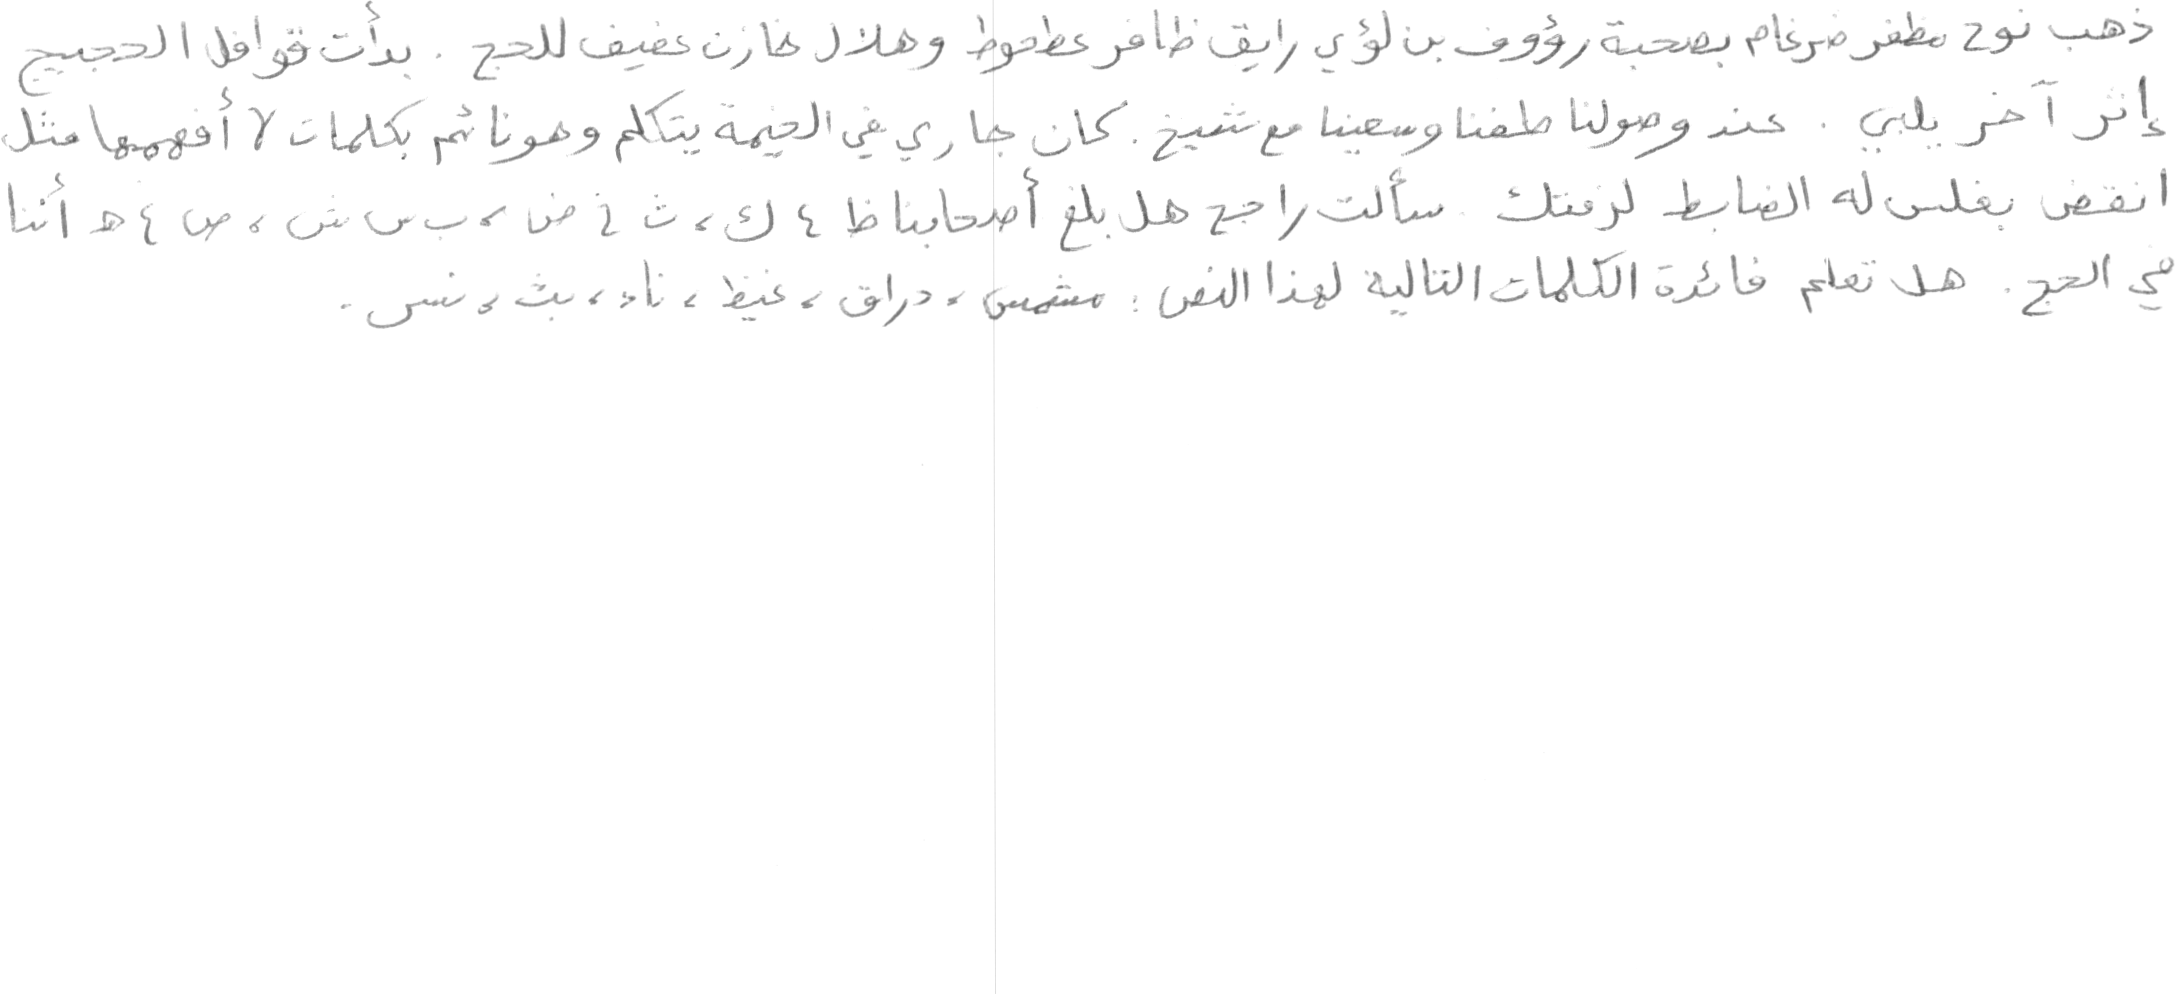 ذهب نوح مظفر ضرغام بصحبة رؤوف بن لؤي رايق ظافر عطعوط وهلال خازن عفيف للحج . بدأت قوافل الحجيج
إثر آخر يلبي . عند وصولنا طفنا وسعينا مع شيخ . كان جاري في الخيمة يتكلم وهو نائم بكلمات لا أفهمها مثل
انقض بغلس له الضابط لزمتك . سألت راجح هل بلغ أصحابنا ظ ء ك ، ث خ ض ، ب س ش ، ص غ ه أننا
في الحج . هل تعلم فائدة الكلمات التالية لهذا النص : مشمس ، دراق ، غيظ ، ناء ، بث ، نسى .